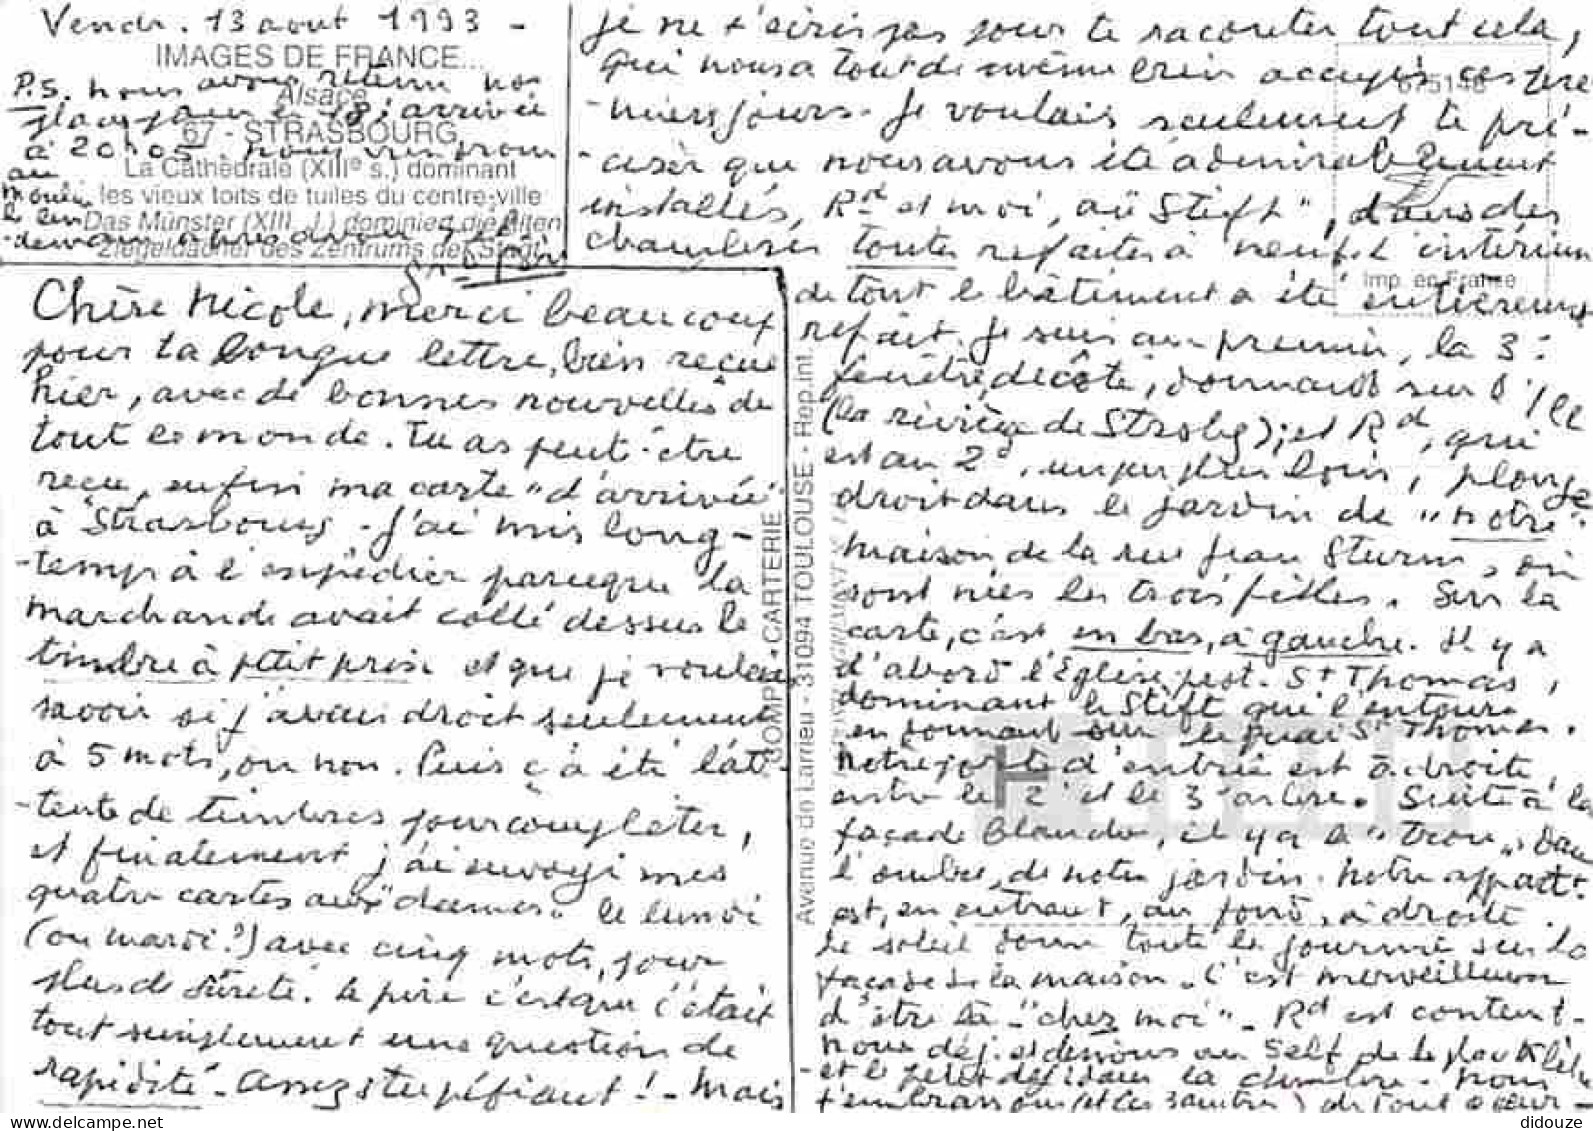 Vendr. 13 aout 1993 -
IMAGES DE FRANCE...
Alsace
67 - STRASBOURG
La Cathédrale (XIIIe s.) dominant
les vieux toits de tuiles du centre-ville
Das Münster (XIII. J.) dominiert die Alten
Ziegeldächer des Zentrums der Stadt
P.S. nous avons retenu nos
places pour le 18; arrivée
à 20h05. nous
au
Moulin
le len
-demain après
Chère Nicole, merci beaucoup
pour ta longue lettre, bien reçue
hier, avec de bonnes nouvelles de
tout le monde. Tu as peut-être
reçu, enfin ma carte "d'arrivée"
à Strasbourg - j'ai mis long-
-temps à l'expédier parceque la
marchande avait collé dessus le
timbre à petit prix et que je voulais
savoir si j'avais droit seulement
à 5 mots, ou non. Puis ç'a été l'at-
-tente de timbres pour compléter,
et finalement j'ai envoyé mes
quatre cartes aux "dames" le lundi
(ou mardi?) avec cinq mots, pour
plus de sûreté. Le pire c'est que c'était
tout simplement une question de
rapidité - assez stupéfiant! - Mais
je ne t'écris pas pour te raconter tout cela,
qui nous a tout de même bien occupés ces pre
-miers jours. Je voulais seulement te pré-
-ciser que nous avons été admirablement
installés, Rd et moi, au "Stift", dans des
chambres toutes refaites à neuf. L'intérieur
de tout le bâtiment a été entièrement
refait. Je suis au premier, la 3e
fenêtre, de côté, donnant sur l'Ill
(la rivière de Strasbg); et Rd, qui
est au 2d, un peu plus loin, plonge
droit dans le jardin de "notre"
maison de la rue Jean Sturm, où
sont nées les trois filles. Sur la
carte, c'est en bas, à gauche. Il y a
d'abord l'Eglise prot. St Thomas,
dominant le Stift qui l'entoure
en donnant sur le quai St Thomas.
Notre porte d'entrée est à droite,
entre le 2e et le 3e arbre. Suite à la
façade blanche, il y a le "trou", dans
l'ombre, de notre jardin. Notre appart.
est, en entrant, au fond, à droite
le soleil donne toute la journée sur la
façade de la maison. C'est merveilleux
d'être là - "chez moi" - Rd est content -
nous déj. et dînons au Self de la place Kléb
- et le petit déj dans la chambre. Nous
t'embrassons (et les 3 autres) de tout cœur -
675148
Imp. en France
COMP CARTERIE
Avenue de Larrieu - 31094 TOULOUSE - Rep.int.
www.delcampe.net
didouze